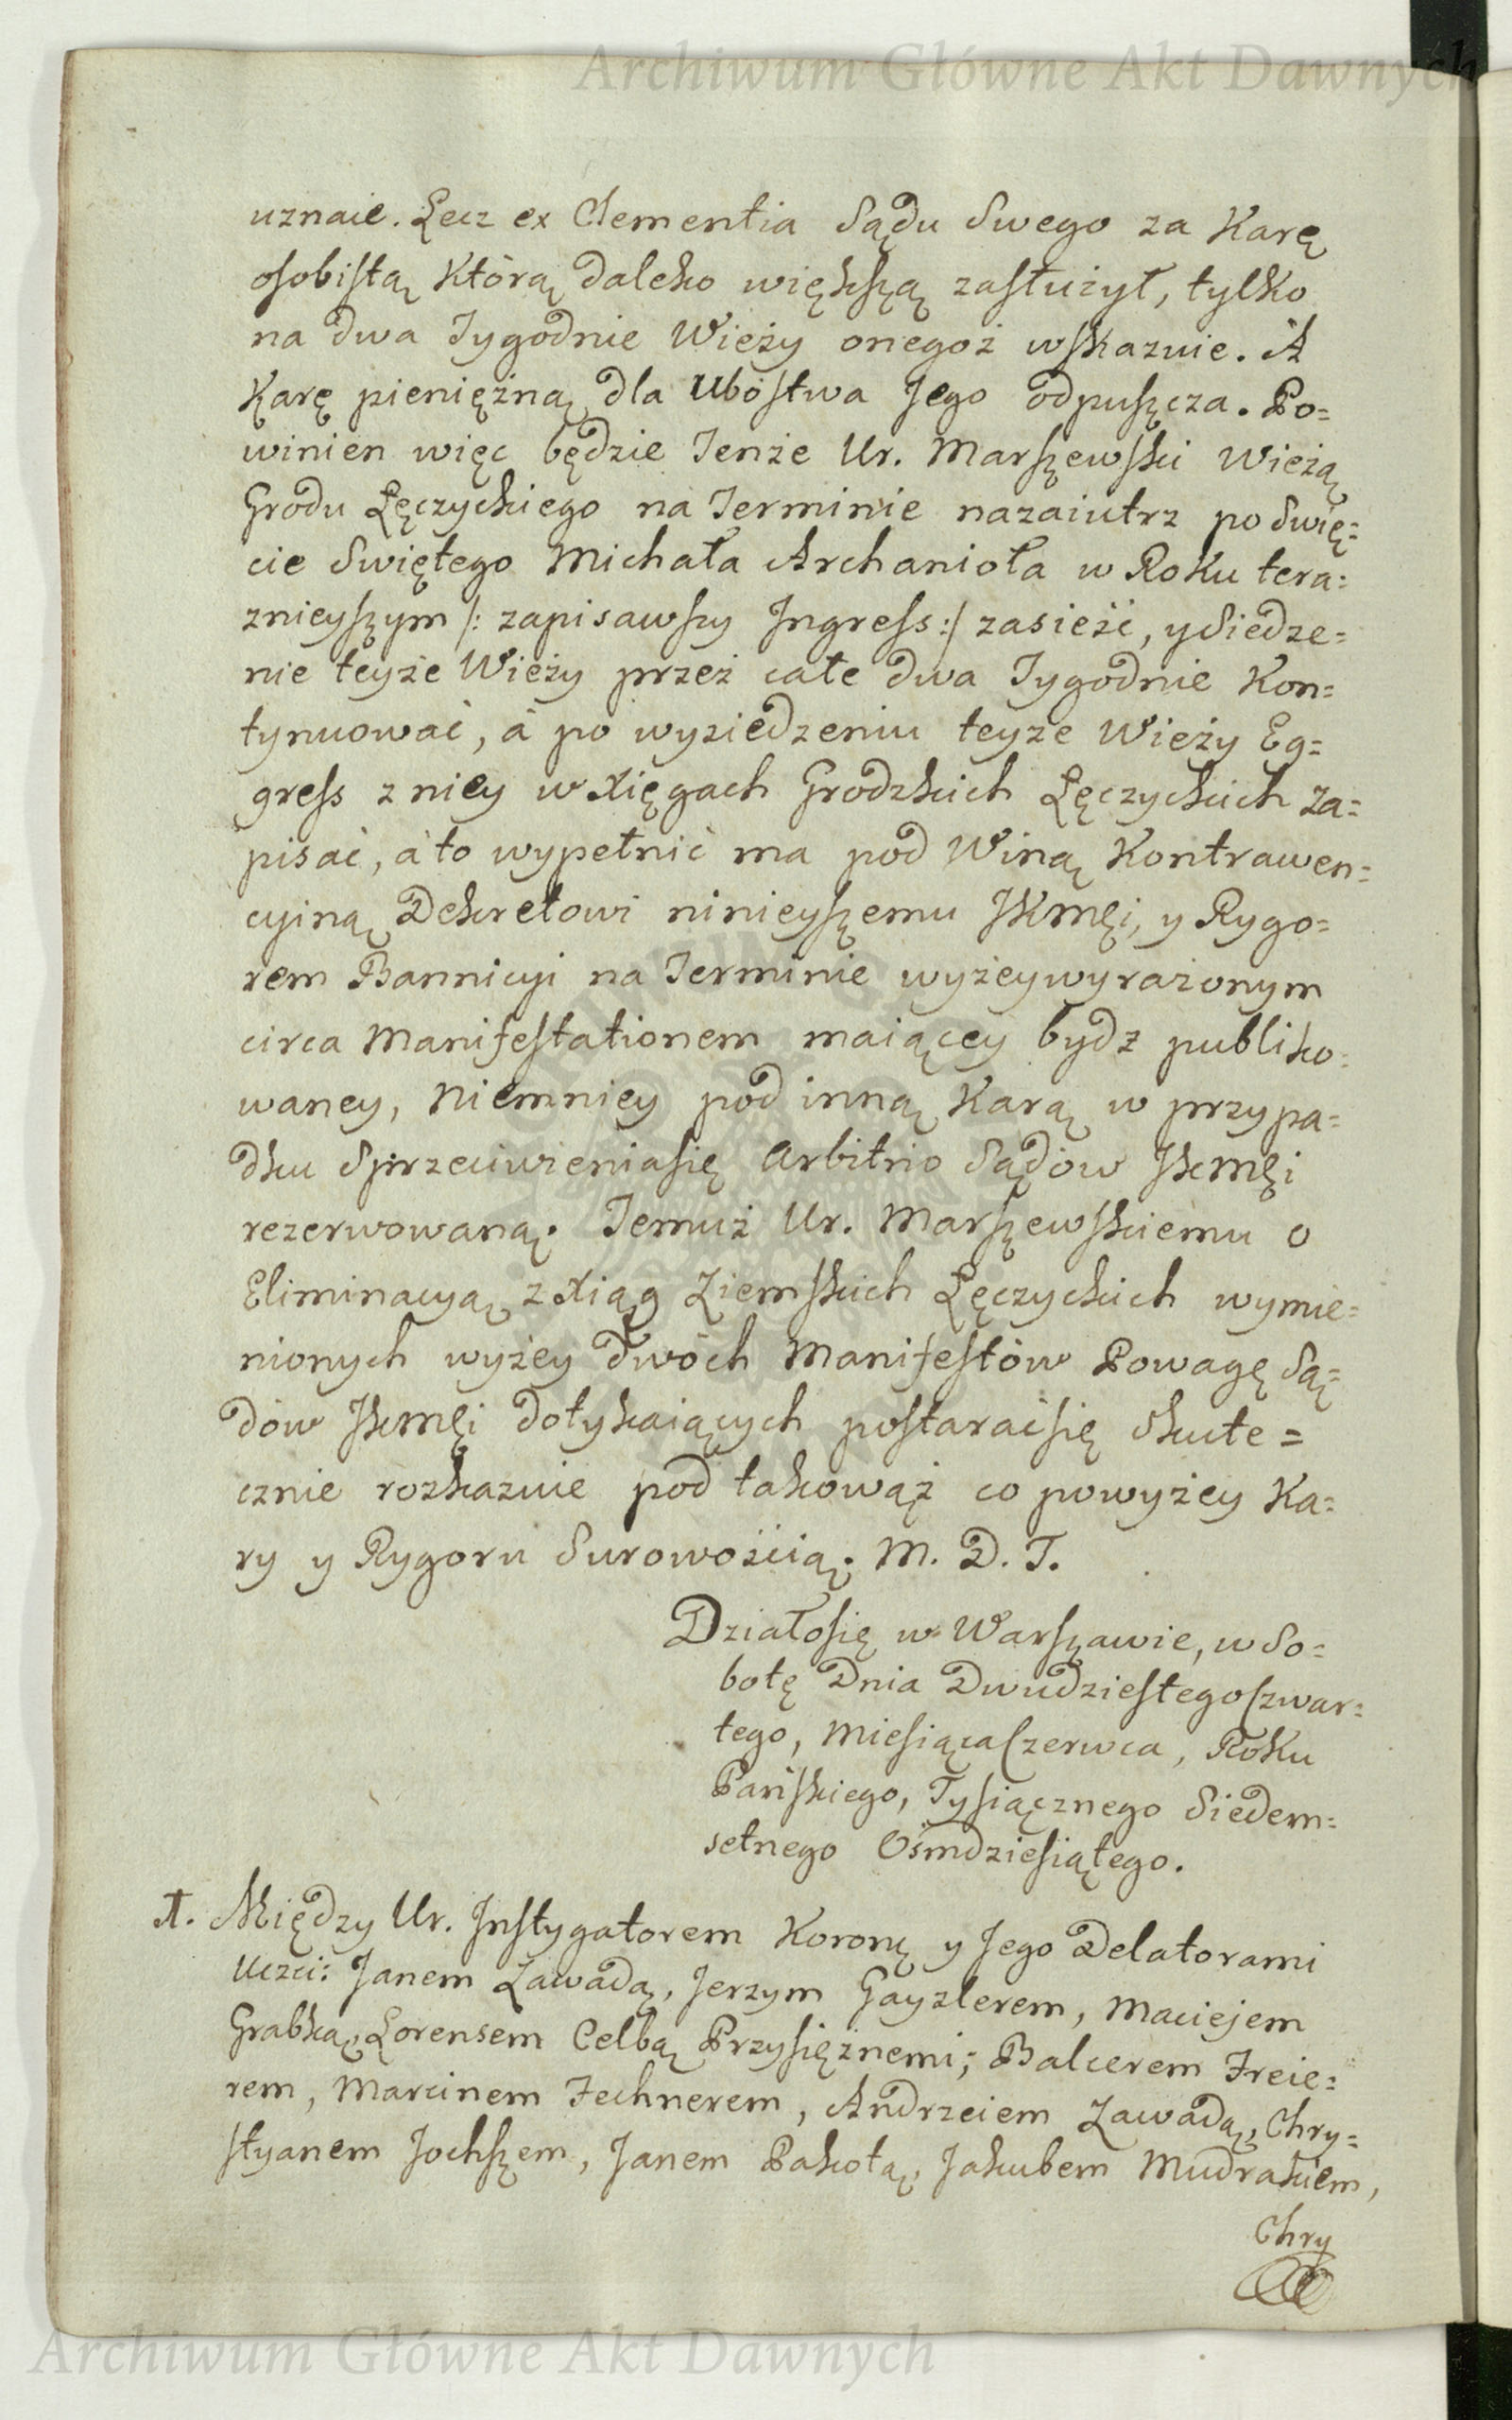 Archiwum Główne Akt Dawnych
uznaie. Lecz ex Clementia Sądu Swego za Karę
osobistą Którą daleko większą zasłużył, tylko
na dwa Tygodnie Wieży onegoż wskazuie. A
Karę pieniężną dla Ubóstwa Jego odpuszcza. Po=
winien więc będzie Tenże Ur. Marszewski Wieżą
Grodu Łęczyckiego na Terminie nazaiutrz po Swię=
cie Swiętego Michała Archanioła w Roku tera=
znieyszym /: zapisawszy Ingress :/ zasieść, y Siedze=
nie teyże Wieży przez całe dwa Tygodnie Kon=
tynuować, á po wysiedzeniu teyże Wieży Eg=
gress z niey w Xięgach Grodzkich Łęczyckich za=
pisać, á to wypełnić ma pod Winą Kontrawen=
cyiną Dekretowi ninieyszemu JKmci, y Rygo=
rem Bannicyi na Terminie wyżeywyrażonym
circa Manifestationem maiącey bydz publiko=
waney, Niemniey pod inną Karą w przypa=
dku Sprzeciwienia się Arbitrio Sądów JKmci
rezerwowaną. Temuż Ur. Marszewskiemu o
Eliminacyą z Xiąg Ziemskich Łęczyckich wymie=
nionych wyżey dwóch Manifestów Powagę Są=
dów JKmci dotykaiących postarać się Skute=
cznie rozkazuie pod takowąż co powyżey Ka=
ry y Rygoru Surowością. M. D. T.
Działo się w Warszawie, w So=
botę Dnia Dwudziestego Czwar=
tego, Miesiąca Czerwca, Roku
Pańskiego, Tysiącznego Siedem=
setnego Ośmdziesiątego.
Między Ur. Instygatorem Koronę y Jego Delatorami
Uczci: Janem Zawadą, Jerzym Gayzlerem, Maciejem
Grabką, Lorensem Celbą Przysiężnemi; Balcerem Freie=
rem, Marcinem Fechnerem, Andrzeiem Zawadą, Chry=
styanem Jochszem, Janem Pakołą, Jakubem Mudrakiem,
Chry
Archiwum Główne Akt Dawnych